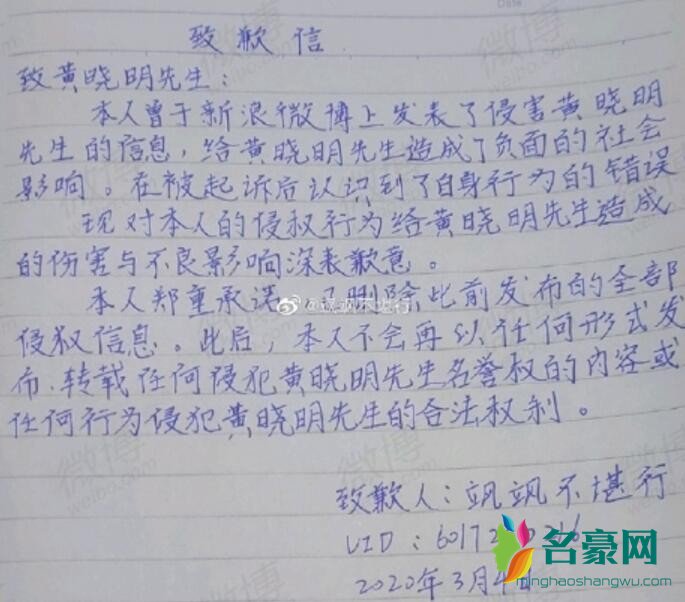 Date
致歉信
致黄晓明先生：
本人曾于新浪微博上发表了侵害黄晓明
先生的信息，给黄晓明先生造成了负面的社会
影响。在被起诉后认识到了自身行为的错误
现对本人的侵权行为给黄晓明先生造成
的伤害与不良影响深表歉意。
本人郑重承诺 删除此前发布的全部
侵权信息。此后，本人不会再以任何形式发
布、转载任何侵犯黄晓明先生名誉权的内容或
任何行为侵犯黄晓明先生的合法权利。
致歉人：飒飒不堪行
UID：60172
2020年3月4日
@飒飒不堪行
名豪网
minghaoshangwu.com
微博
weibo.com
微博
weibo.com
微博
weibo.com